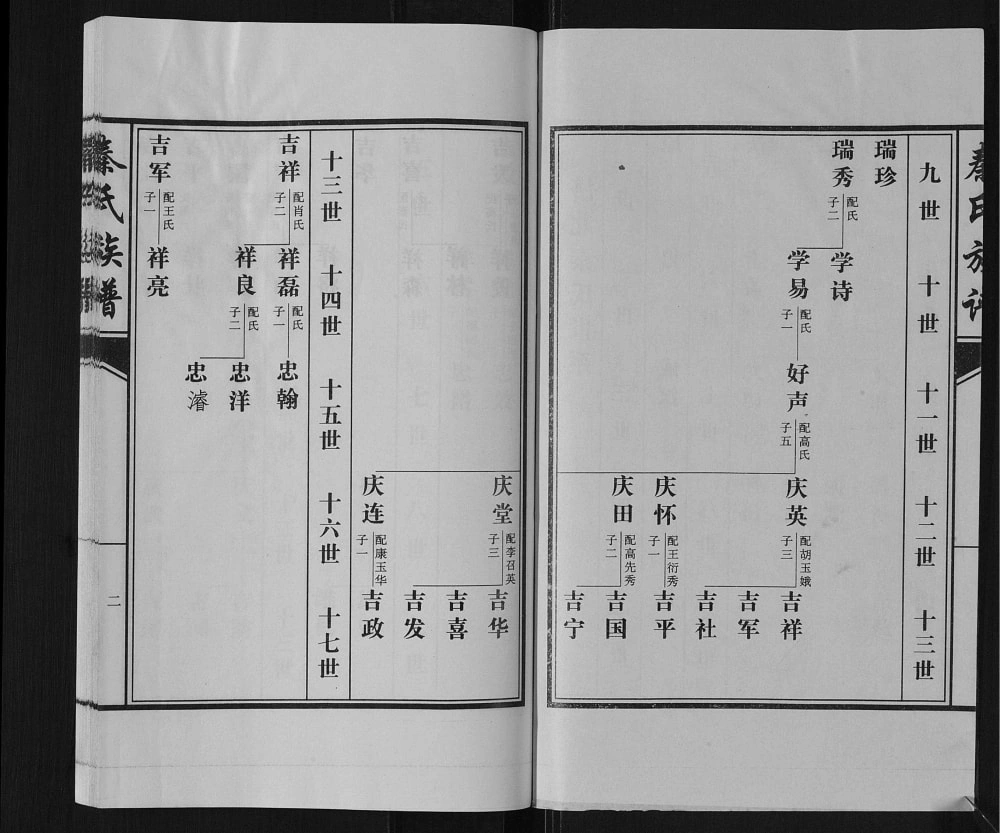 秦氏族谱
九世
十世
十一世
十二世
十三世
瑞珍
瑞秀
配氏
子二
学诗
学易
配氏
子一
好声
配高氏
子五
庆英
配胡玉娥
子三
吉祥
吉军
吉社
庆怀
配王衍秀
子一
吉平
庆田
配高先秀
子二
吉国
吉宁
庆堂
配李召英
子三
吉华
吉喜
吉发
庆连
配康玉华
子一
吉政
十三世
十四世
十五世
十六世
十七世
吉祥
配肖氏
子二
祥磊
配氏
子一
忠翰
祥良
配氏
子二
忠洋
忠濬
吉军
配王氏
子一
祥亮
秦氏族谱
二